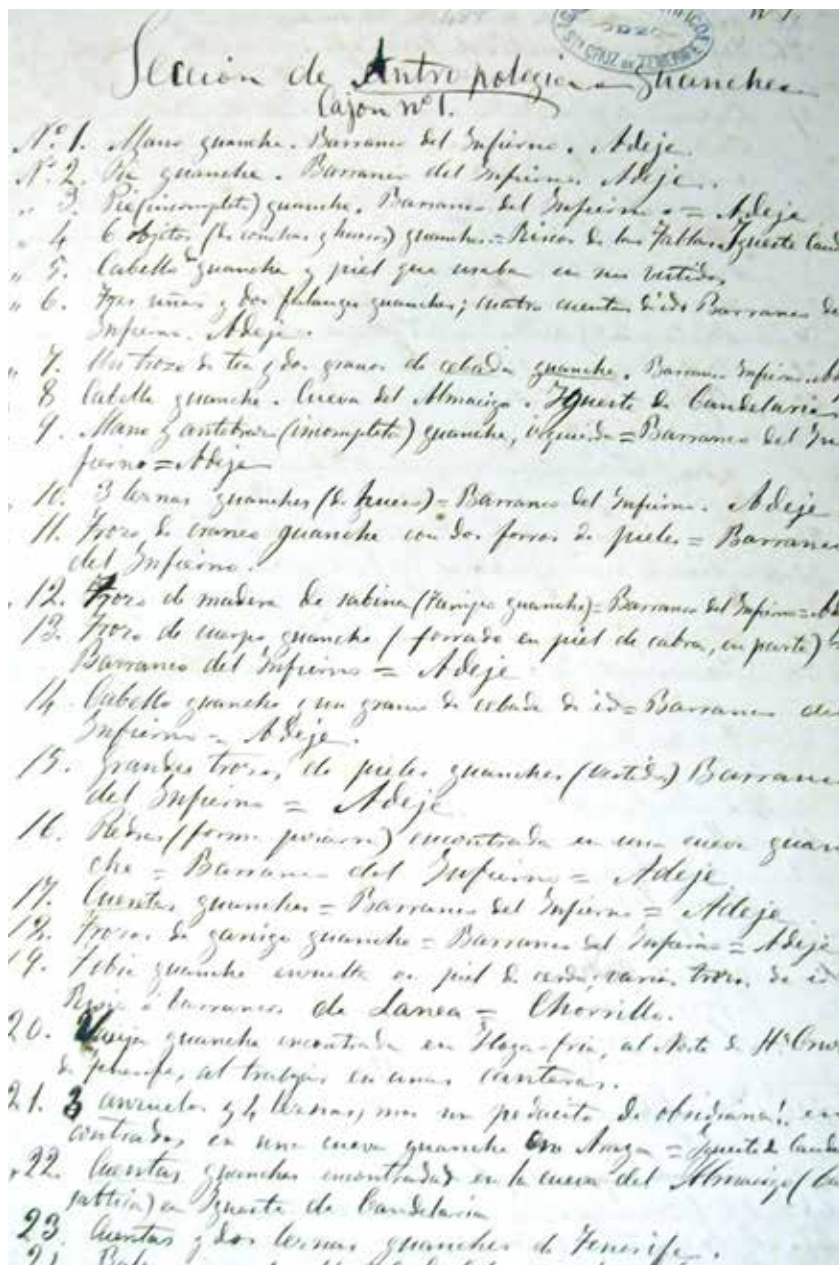 STA CRUZ DE TENERIFE
Sección de Antropología guanche
Cajón nº 1.
Nº 1. Mano guanche. Barranco del Infierno. Adeje.
Nº 2. Pie guanche. Barranco del Infierno. Adeje.
" 3. Pie (incompleto) guanche. Barranco del Infierno. = Adeje
" 4 6 objetos (de conchas y hueso) guanches = Riscos de las Igueste
" 5. Cabello guanche y piel que usaban en sus vestidos
" 6. Tres uñas y dos falanges guanches; cuatro cuentas de id. Barranco del
Infierno. Adeje.
" 7. Un trozo de tea y dos granos de cebada guanche. Barranco Infierno.
8 Cabello guanche. Cueva del Almacigo. Igueste de Candelaria
9. Mano y antebrazo (incompleto) guanche, izquierda = Barranco del In
fierno = Adeje
" 10. 3 lesnas guanches (de hueso) = Barranco del Infierno. Adeje
11. Trozo de craneo guanche con dos forros de pieles = Barranco
del Infierno.
12. Trozo de madera de sabina ( guanche) = Barranco del Infierno =
13. Trozo de cuerpo guanche (forrado en piel de cabra, en parte) =
Barranco del Infierno = Adeje
14. Cabello guanche y un grano de cebada de id = Barranco del
Infierno = Adeje.
15. Grandes trozos de pieles guanches (vestidos) Barranco
del Infierno = Adeje
16. Piedras (forma ) encontrada en una cueva guan
che = Barranco del Infierno = Adeje
17. Cuentas guanches = Barranco del Infierno = Adeje
18. Trozos de ganigo guanche = Barranco del Infierno = Adeje
19. Tibia guanche envuelta en piel de cerdo, varios trozos de id
ó barranco de = Chorrillo.
20. Vasija guanche encontrada en Hoya-fria, al Norte de Sta Cruz
de Tenerife, al trabajar en unas canteras.
21. 3 anzuelos y 4 lesnas, mas un pedacito de obsidiana, en
contrados en una cueva guanche en = Igueste de
" 22. Cuentas guanches encontradas en la cueva del Almacigo (
) en Igueste de Candelaria
23. Cuentas y dos lesnas guanches de Tenerife.